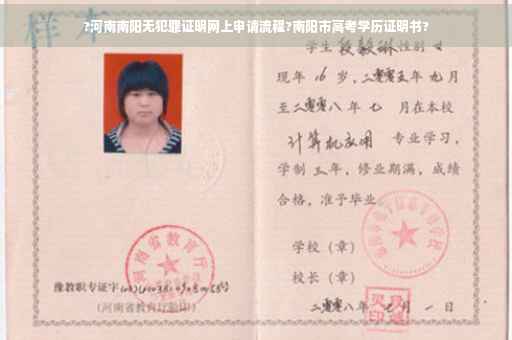 ?河南南阳无犯罪证明网上申请流程?南阳市高考学历证明书?
样本
学生段毅琳性别女
现年16岁，二零零五年九月
至二零零八年七 月在本校
计算机应用 专业学习，
学制三年，修业期满，成绩
合格，准予毕业
学校（章）
校长（章）
二零零八年七月一日
河南省教育厅
豫教职专证字
(河南省教育厅验印)